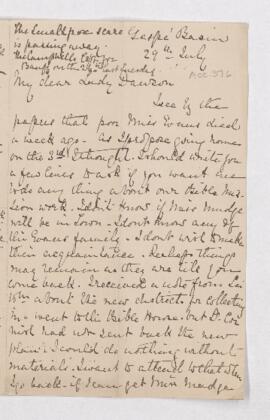 The Smallpox scare Gaspé Basin
is passing away. 29th July
The Campbells left for
on the 2nd last Tuesday. Acc. 576
My dear Lady Dawson
I see by the
papers that poor Miss Evans died
a week ago. As I propose going home
on the 3rd I thought I should write you
a few lines to ask if you want me
to do any thing about our Bible Mis-
sion work. I don't know if Miss Mudge
will be in town. I don't know any of
the Evans family. I don't wish to make
their acquaintance. Perhaps things
may remain as they are till you
come back. I received a note from
about the new districts for collecting
I went to the Bible House, but Dr. Cor-
nish had not sent back the new
plan. I could do nothing without
materials. I want to attend to that when
I go back. If I can get Miss Mudge